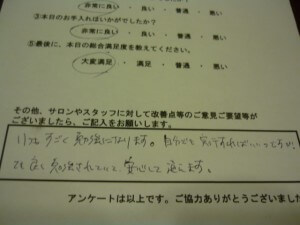 非常に良い ・ 良い ・ 普通 ・ 悪い
③本日のお手入れはいかがでしたか？
非常に良い ・ 良い ・ 普通 ・ 悪い
⑤最後に、本日の総合満足度を教えてください。
大変満足 ・ 満足 ・ 普通 ・ 悪い
その他、サロンやスタッフに対して改善点等のご意見ご要望等が
ございましたら、ご記入をお願いします。
いつも すごく 勉強になります。自分でも
安心して 通えます。
アンケートは以上です。ご協力ありがとうございまし